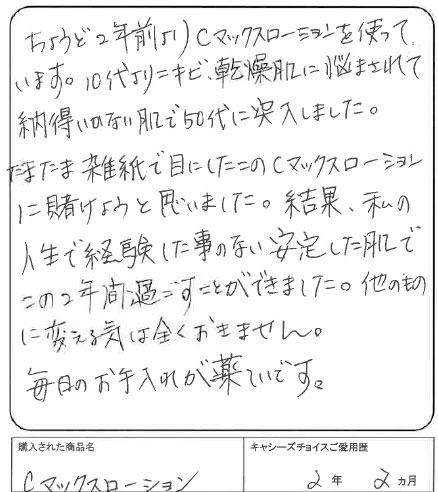 ちょうど2年前よりCマックスローションを使って
います。10代よりニキビ、乾燥肌に悩まされて
納得いかない肌で50代に突入しました。
たまたま雑紙で目にしたこのCマックスローション
に賭けようと思いました。結果、私の
人生で経験した事のない安定した肌で
この2年間過ごすことができました。他のもの
に変える気は全くおきません。
毎日のお手入れが楽しいです。
購入された商品名
Cマックスローション
キャシーズチョイスご愛用歴
2年 2ヵ月